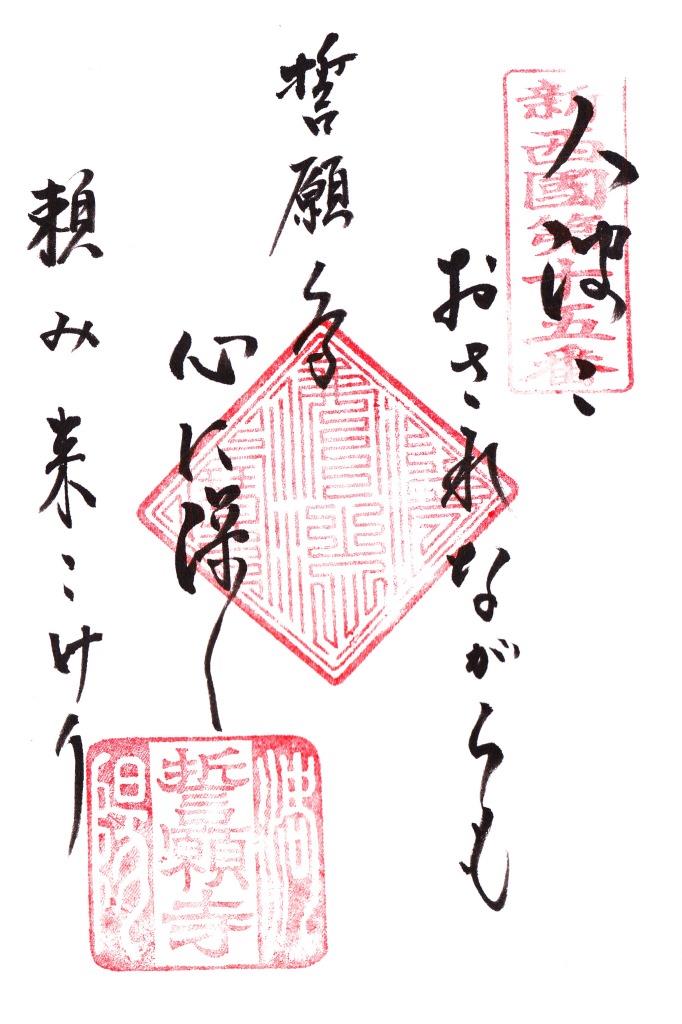 新西國第十五番
人波に
おされながらも
誓願寺
心に深く
頼み来にけり
誓願寺